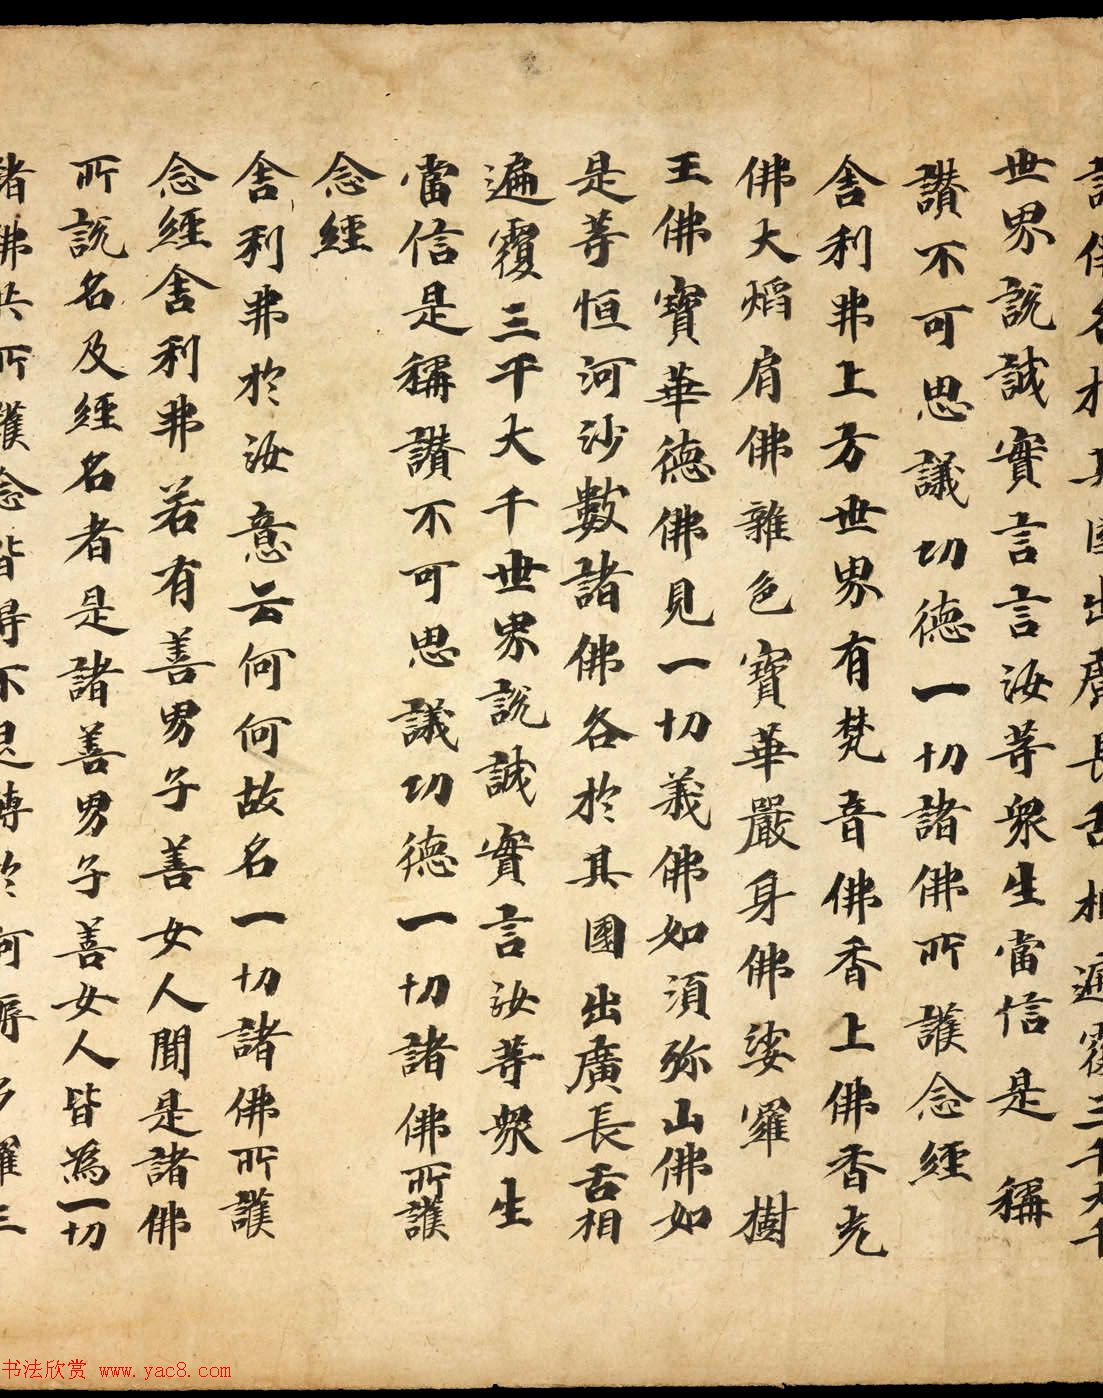 諸佛各於其國出廣長舌相遍覆三千大千
世界說誠實言言汝等衆生當信是稱
讃不可思議切德一切諸佛所護念經
舍利弗上方世界有梵音佛香上佛香光
佛大焰肩佛雜色寶華嚴身佛娑羅樹
王佛寶華德佛見一切義佛如須弥山佛如
是等恒河沙數諸佛各於其國出廣長舌相
遍覆三千大千世界說誠實言汝等衆生
當信是稱讃不可思議功德一切諸佛所護
念經
舍利弗於汝意云何何故名一切諸佛所護
念經舍利弗若有善男子善女人聞是諸佛
所說名及經名者是諸善男子善女人皆為一切
諸佛共所護念皆得不退轉於阿耨多羅三
书法欣赏 www.yac8.com